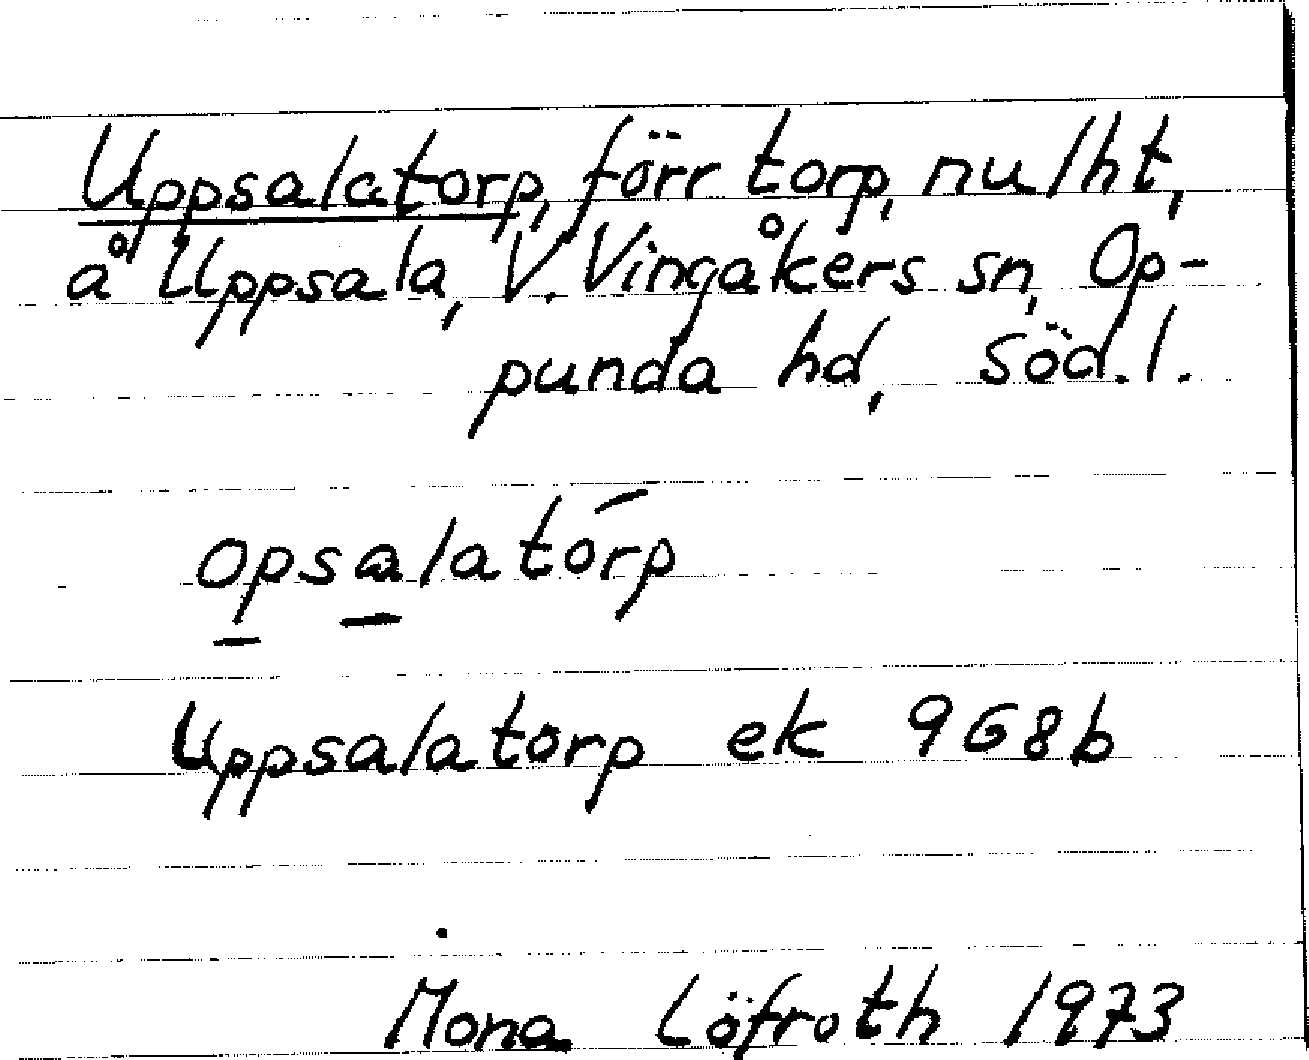 Uppsalatorp, förr torp, nu lht,
å Uppsala, V. Vingåkers sn, Op-
punda hd, Söd. l.
opsalatórp
Uppsalatorp ek 9G8b
Mona Löfroth 1973